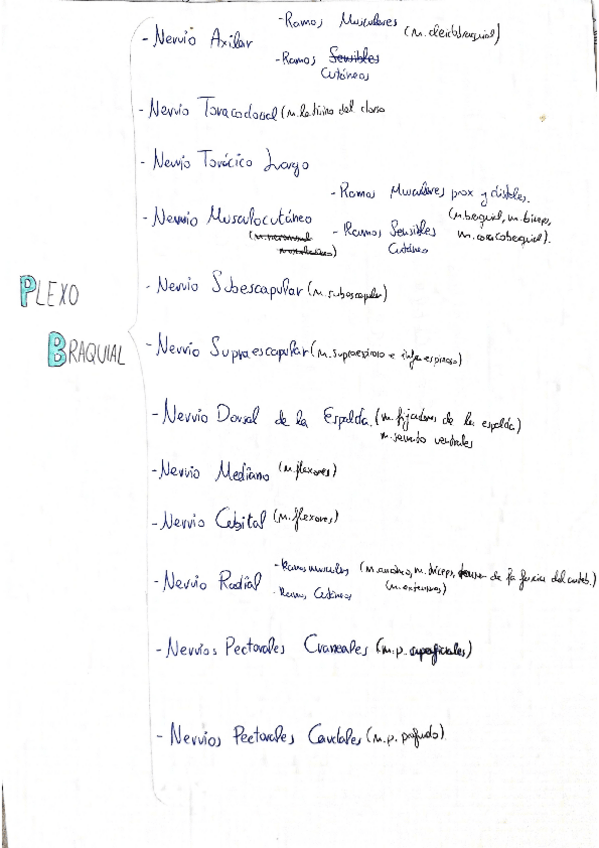 - Nervio Axilar
- Ramos Musculares (m. cleidobraquial)
- Ramos Sensibles
Cutáneos
- Nervio Toracodorsal (m. latísimo del dorso
- Nervio Torácico Largo
- Nervio Musculocutáneo
- Ramos Musculares prox y distales.
(m. braquial, m. biceps,
m. coracobraquial).
- Ramos Sensibles
Cutáneo
PLEXO
BRAQUIAL
- Nervio Subescapular (m. subescapular)
- Nervio Supraescapular (m. supraespinoso e infraespinoso)
- Nervio Dorsal de la Espalda. (m. fijadores de la espalda)
m. serrato ventrales
- Nervio Mediano (m. flexores)
- Nervio Cubital (m. flexores)
- Nervio Radial
- Ramos musculares (m. ancóneo, m. tríceps, de la fascia del anteb.)
(m. extensores)
- Ramos Cutáneos
- Nervios Pectorales Craneales (m. p. superficiales)
- Nervios Pectorales Caudales (m. p. profundo)